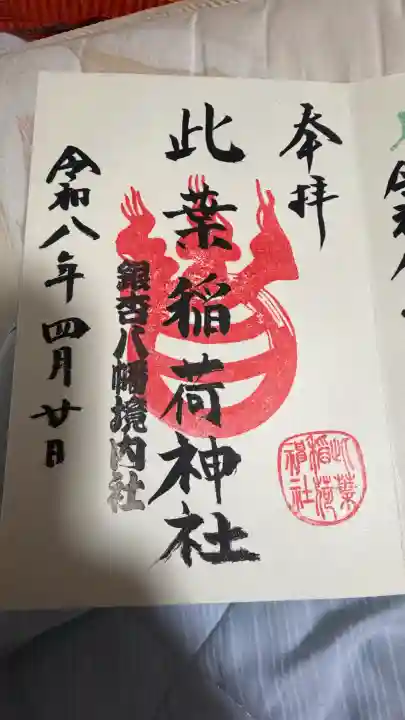 奉拝
此葉稲荷神社
銀杏八幡境内社
令和八年四月廿日
此葉
稲荷
神社